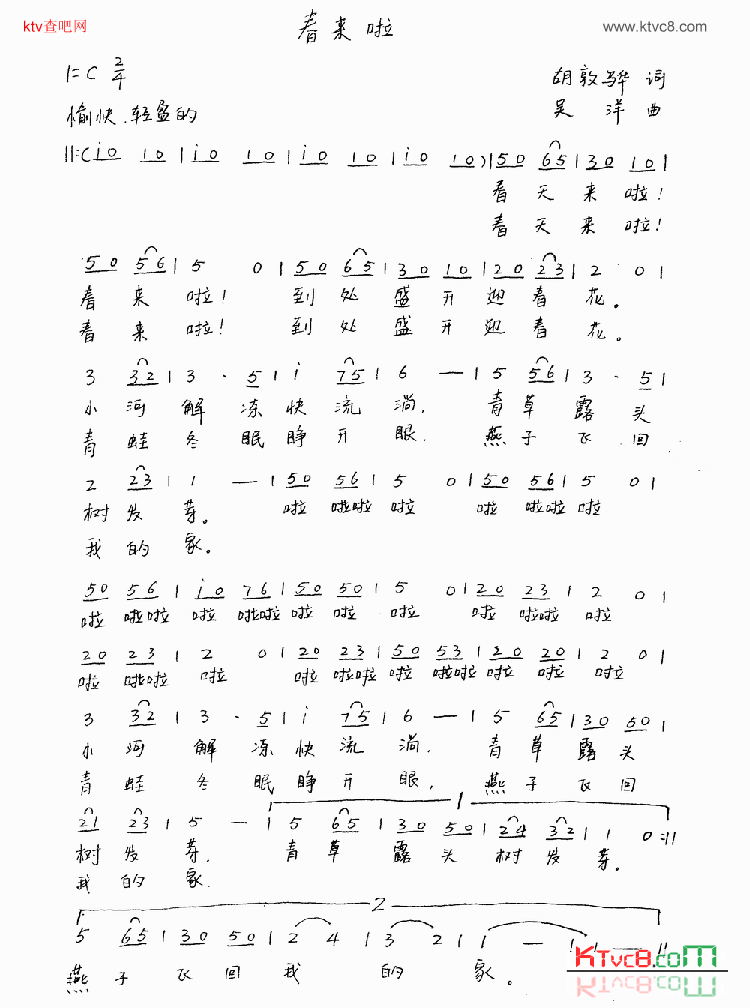 ktv查吧网
www.ktvc8.com
春来啦
1=C 2/4
胡敦骅 词
愉快、轻盈的
吴洋 曲
||:(i0 10|i0 10|i0 10|i0 10)|50 65|30 10|
春天来啦!
春天来啦!
50 56|5 0|50 65|30 10|20 23|2 0|
春来啦! 到处盛开迎春花。
春来啦! 到处盛开迎春花。
3 32|3 · 5|i 75|6 —|5 56|3 · 5|
小河解冻快流淌, 青草露头
青蛙冬眠睁开眼. 燕子飞回
2 23|1 —|50 56|5 0|50 56|5 0|
树发芽。 啦 啦啦 啦 啦 啦啦 啦
我的家。
50 56|i0 76|50 50|5 0|20 23|2 0|
啦 啦啦 啦 啦啦 啦 啦 啦 啦 啦啦 啦
20 23|2 0|20 23|50 53|20 20|2 0|
啦 啦啦 啦 啦 啦啦 啦 啦啦 啦 啦 啦
3 32|3 · 5|i 75|6 —|5 65|30 50|
小河解冻快流淌, 青草露头
青蛙冬眠睁开眼, 燕子飞回
1
21 23|5 —|5 65|30 50|24 32|1 0:||
树发芽, 青草露头树发芽。
我的家.
2
5 65|30 50|2 4|3 2|1 —|1 —||
燕子飞回我的家。
KTvc8.com